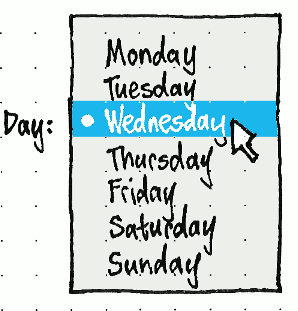 Monday
Tuesday
Day: Wednesday
Thursday
Friday
Saturday
Sunday